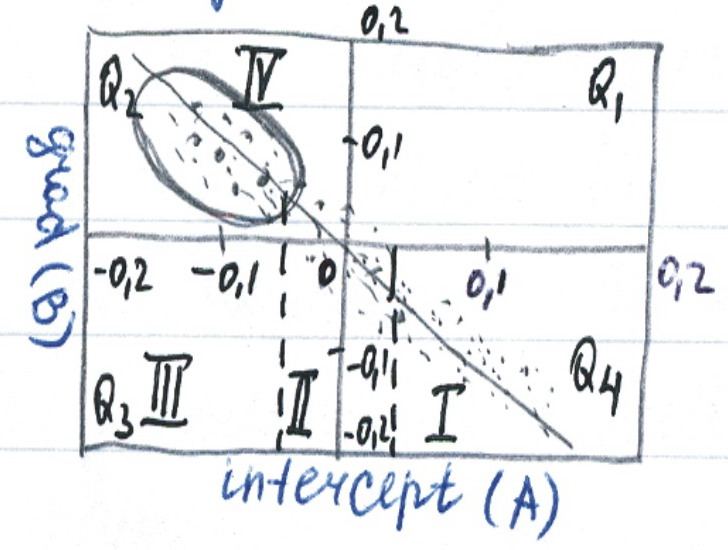 0,2
Q2 IV Q1
0,1
grad (B)
-0,2 -0,1 0 0,1 0,2
-0,1
Q3 III II -0,2 I Q4
intercept (A)